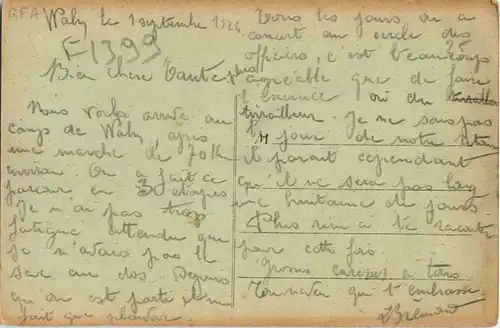 RFA Wahn le 1 septembre 1924
F1399
Bien chere Tante
Nous voilà arrivé au
camps de Wahn, après
une marche de 70 K
environ. On a fait ce
parcour en 3 étapes
Je n'ai pas trop
fatigué attendu que
je n'avais pas le
sac au dos. Depuis
qu'on est parti il ne
fait que pleuvoir
Tous les jours on a
concert au cercle des
officiers, c'est beaucoup
plus agréable que de faire
l'exercice ou du
tirailleur. Je ne sais pas
le jour de notre retour
il parait cependant
qu'il ne sera pas long
une huitaine de jours
Plus rien à te raconter
pour cette fois
Grosses caresses à tous
Ton neveu qui t'embrasse